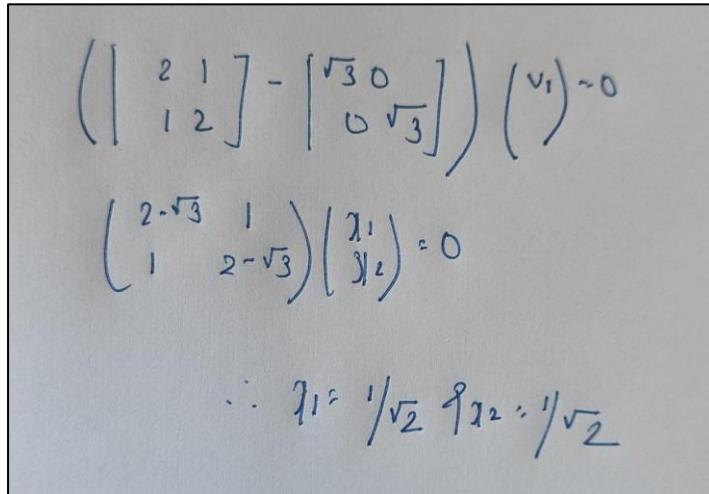 ([2 1 1 2] - [√3 0 0 √3]) (v1) = 0
(2-√3 1 1 2-√3) (x1 x2) = 0
∴ x1 = 1/√2 & x2 = 1/√2